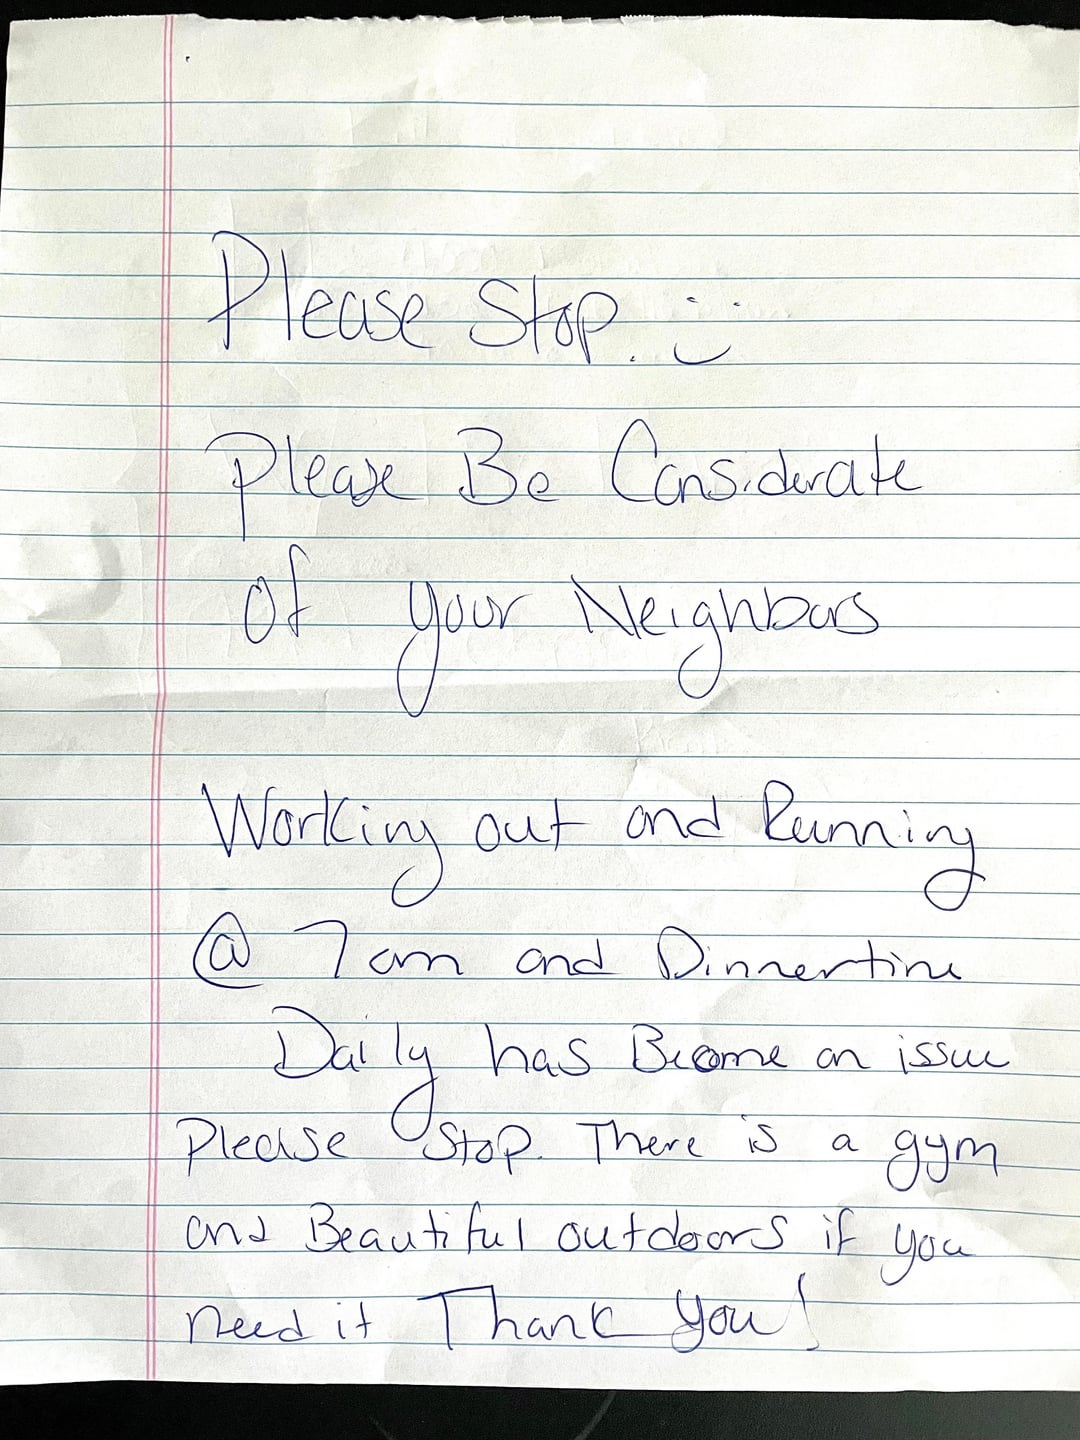 Please Stop. :)
Please Be Considerate
of your Neighbors
Working out and Running
@ 7am and Dinnertime
Daily has Become an issue
Please Stop. There is a gym
and Beautiful outdoors if you
need it Thank You!